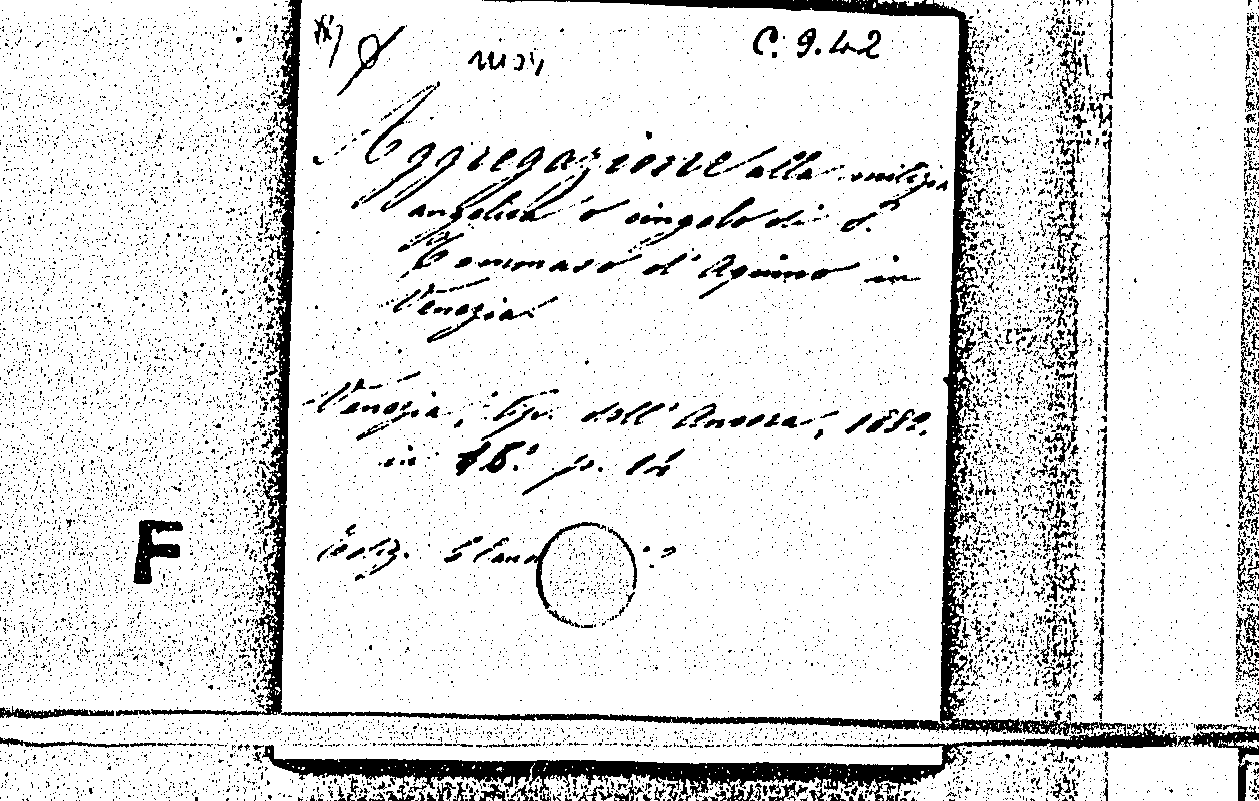 C. 9. 42
Aggregazione alla milizia
angelica o cingolo di S.
Tommaso d'Aquino in
Venezia
Venezia, Tip. dell' Ancora, 1882.
in 16.° p.
F